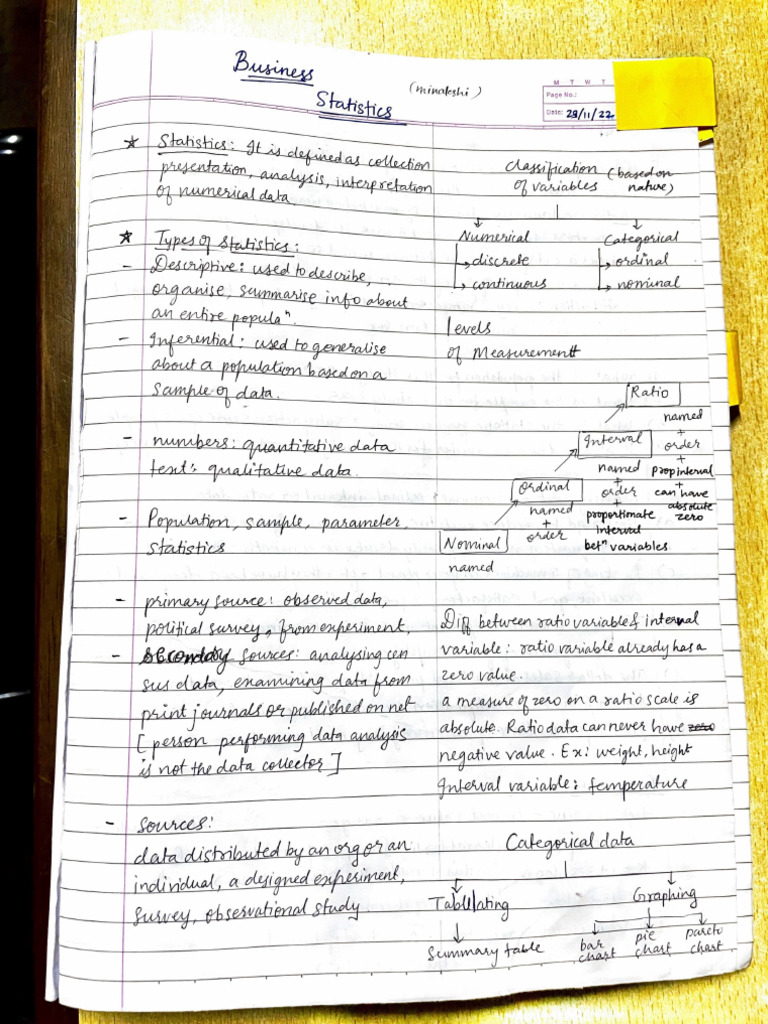 Business
Statistics
(minakshi)
M T W T
Page No.:
Date: 28/11/22
* Statistics: It is defined as collection
presentation, analysis, interpretation
of numerical data.
* Types of statistics:
- Descriptive: used to describe,
organise, summarise info about
an entire populaⁿ.
- Inferential: used to generalise
about a population based on a
sample of data.
- numbers: quantitative data
text: qualitative data.
- Population, sample, parameter,
statistics
- primary source: observed data,
political survey, from experiment,
- secondary sources: analysing cen
sus data, examining data from
print journals or published on net
[person performing data analysis
is not the data collector]
- Sources:
data distributed by an org or an
individual, a designed experiment,
survey, observational study.
Classification (based on
of variables nature)
Numerical Categorical
discrete ordinal
continuous nominal
levels
of Measurement
Ratio
named
+
order
+
prop interval
+
can have
absolute
zero
Interval
named
+
order
+
proportionate
interval
betⁿ variables
Ordinal
named
+
order
Nominal
named
Diff between ratio variable & interval
variable: ratio variable already has a
zero value.
a measure of zero on a ratio scale is
absolute. Ratio data can never have zero
negative value. Ex: weight, height
Interval variable: temperature
Categorical data
Tabulating Graphing
Summary table
bar
chart
pie
chart
pareto
chart